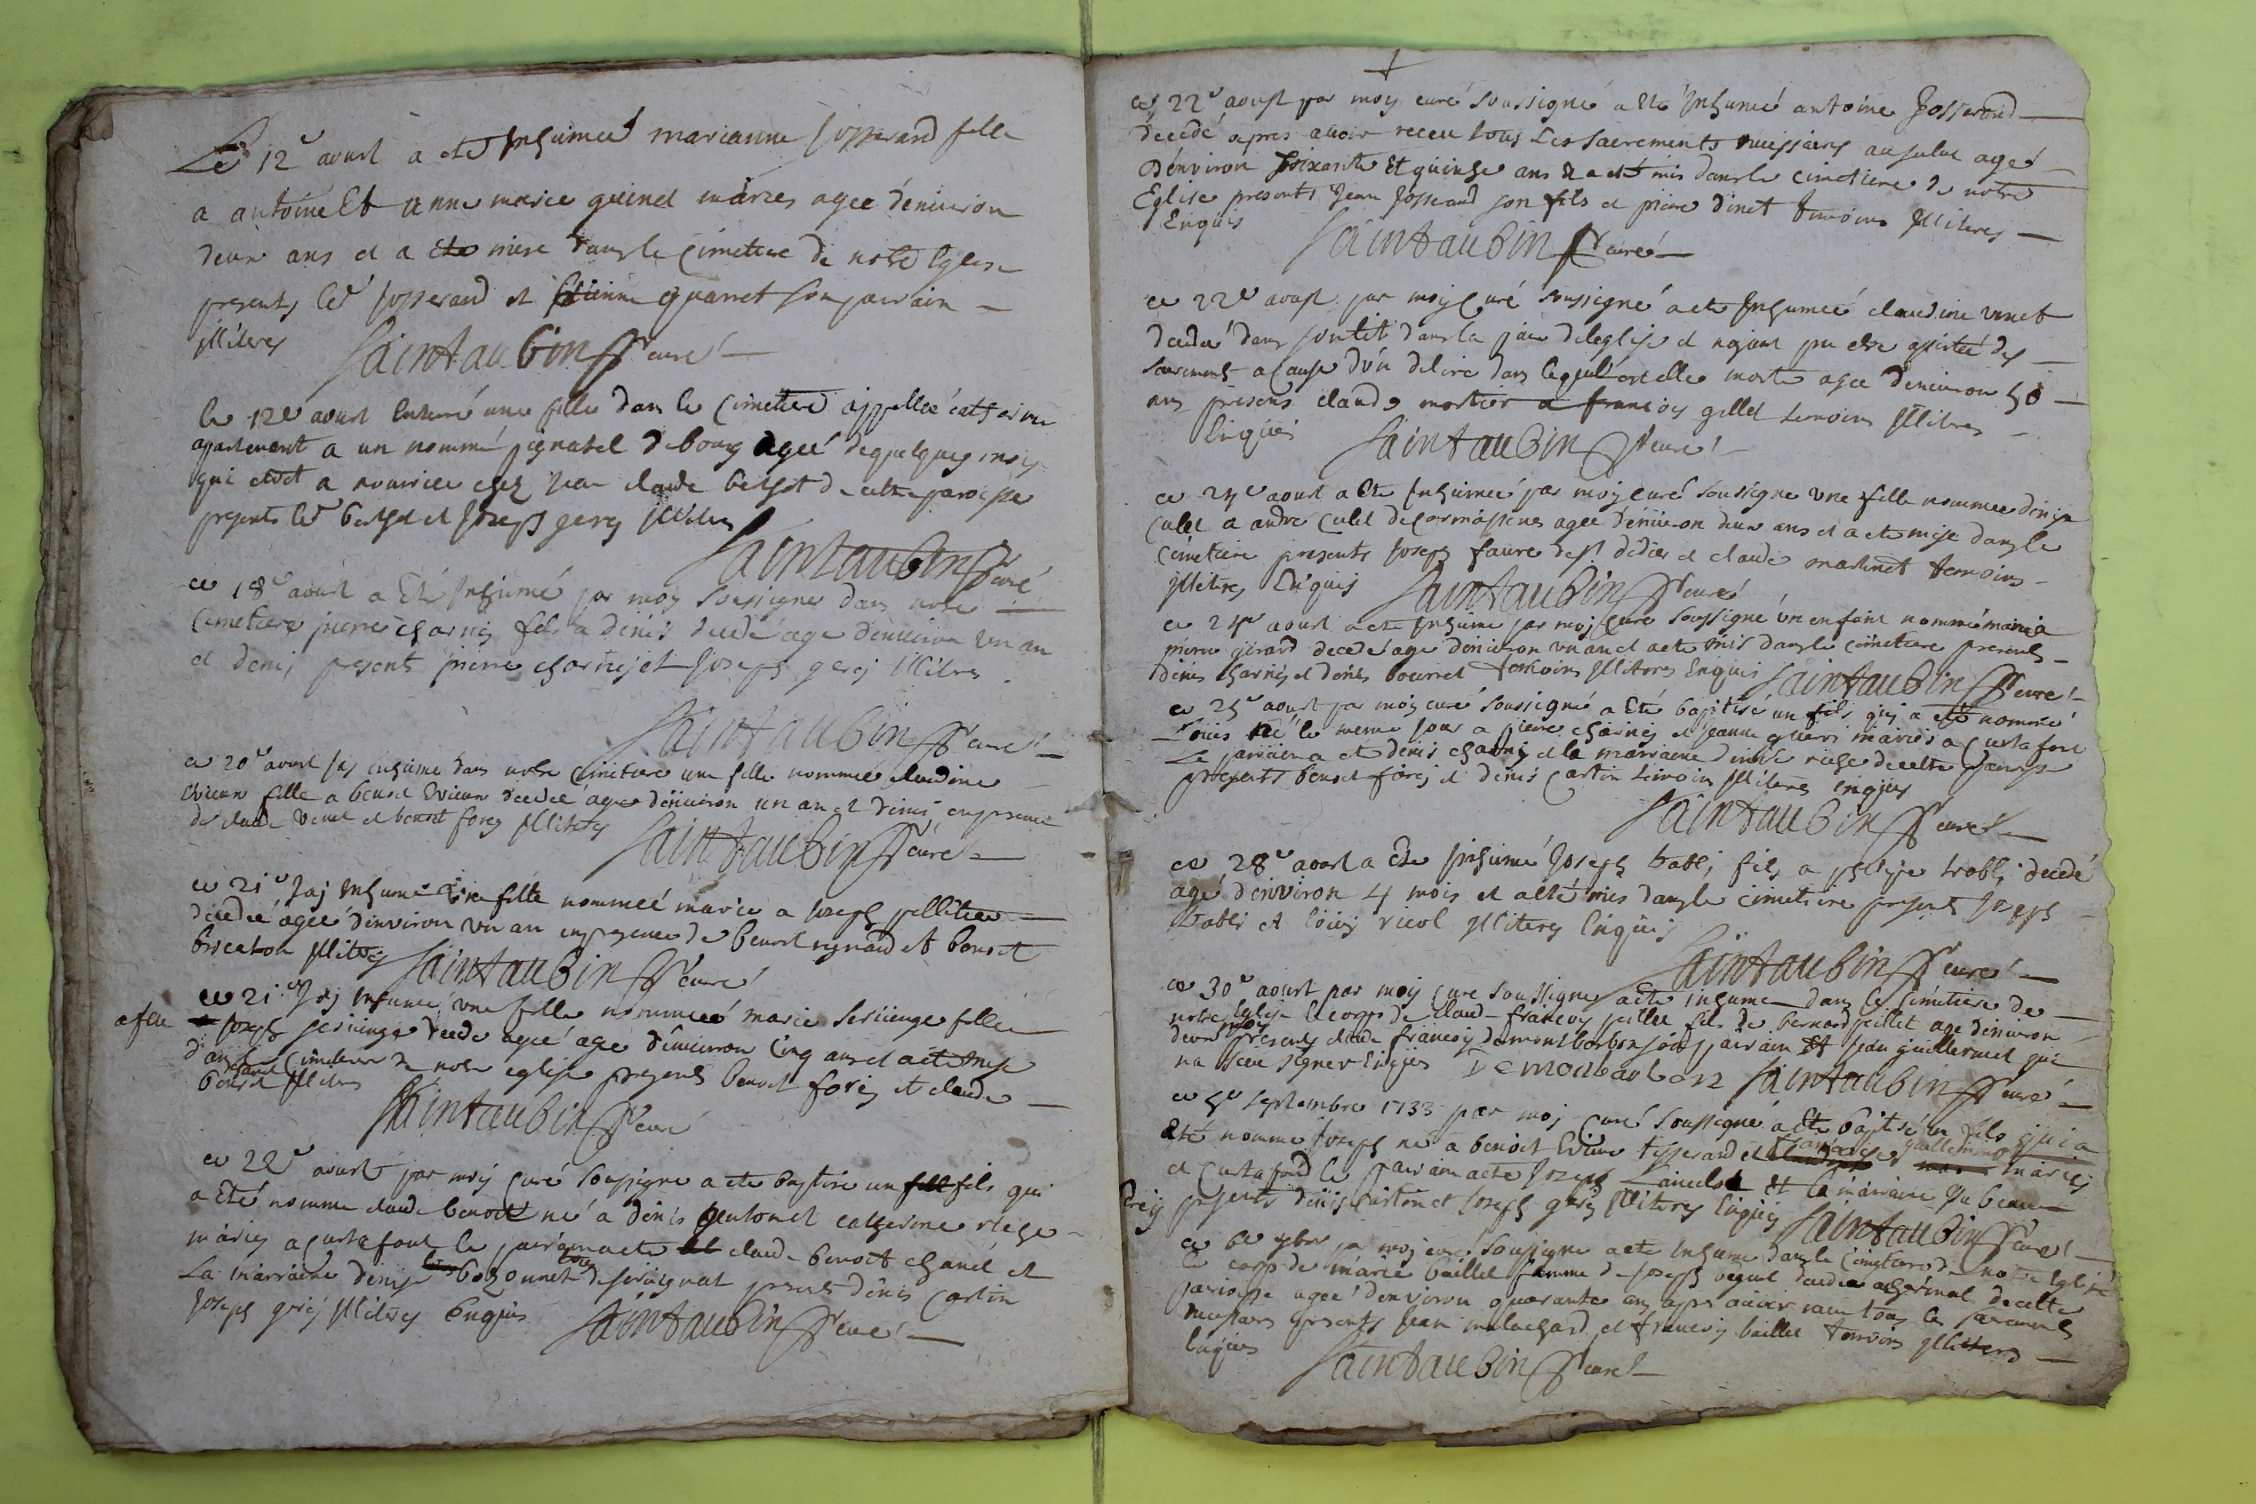 Le 12e aoust a ete Inhumeé marianne Josserand fille
a antoine Et anne marie guinet mariez agee d'enuiron
deux ans et a ete mise dans le Cimetiere de notre Eglise
presents led Josserand et Etienne quarret son parrain
Illiteres Saintaubin Sr curé
le 12e aoust Enterré une fille dans le Cimettiere appellée catherine
appartenant a un nommé pignatel de bourg ageé de quelques mois
qui etoit a nourrice chez Jean claude berthet de cette paroisse
presents led berthet et Joseph gerey Illiteres
Saintaubin Sr curé
ce 18e aoust a Eté Inhumé par moy soussigné dans notre
Cimetiere pierre charney fils a denis decedé age denuiron un an
et demi present pierre charney et Joseph gerej Illitres
Saintaubin Sr curé
ce 20e aoust Jay inhumé dans notre Cimetiere une fille nommee claudine
Evieux fille a benoit Evieux decedeé agee d'enuiron un an et demi en presence
de claude venet et benoit forey Illiteres Saintaubin Sr curé
ce 21e Jaj Inhumé une fille nommeé marie a Joseph pellitier
decedeé ageé d'environ un an en presence de benoit et benoit
Illitres Saintaubin Sr curé
ce 21e Jaj Inhumé une fille nommeé marie feriienge fille
a feu Joseph decede ageé d'enuiron Cinq ans et a ete mise
dans le Cimetiere de notre eglise presents benoit forej et claude
Illitres
Saintaubin Sr curé
ce 22e aoust par moy curé soussigne a ete baptise un fils qui
a Eté nomme claude benoit né a denis et catherine riche
mariez a Curtafont le parrain a ete claude benoit chanel et
La marraine denise presents denis Cartin
Joseph gerej Illitres Enquis Saintaubin Sr curé
ce 22e aoust par moy curé soussigné a eté Inhumé antoine Josserand
decedé apres auoir receu tous Les sacrements necessaires au salut agé
D'environ soixante Et quinze ans Et a esté mis dans le cimetiere de notre
Eglise presents Jean Josserand son fils et pierre dinet temoins Illiteres
Enquis Saintaubin Sr curé
ce 22e aoust par moy Curé soussigné a ete Inhumeé claudine venet
decedeé dans son lit dans la paix de l'eglise et n'ayant pu etre assisteé des
sacrements a Cause d'un delire dans lequel est elle morte agee d'enuiron 50
ans presens claude mortier et francois gillet temoins Illitres
Enquis Saintaubin Sr curé
ce 24e aoust a Ete Inhumeé par moy curé soussigne une fille nommee denise
Culet a andré Culet de agee d'enuiron deux ans et a ete mise dans le
Cimetiere presents Joseph faure de st didier et claude martinet temoins
Illitres Enquis Saintaubin Sr curé
ce 24e aoust a ete Inhumé par moj curé soussigné un enfant nommé
pierre girard decedé age d'enuiron un an et a ete mis dans le cimetiere presents
denis charnej et denis bourret temoins Illiteres Enquis Saintaubin Sr curé
ce 25e aoust par moy curé soussigné a Eté baptisé un fils qui a eté nommé
Loüis né le meme jour a pierre charnej et jeanne mariés a Curtafont
Le parrain a ete denis charnej et la marraine denise riche de cette paroisse
presents benoit forej et denis Cartin temoins Illiteres enquis
Saintaubin Sr curé
ce 28e aoust a Ete Inhumé Joseph trabli fils a philipe trabli decedé
agé d'environ 4 mois et a eté mis dans le cimetiere presents Joseph
trabli et loüis viol Illiteres Enquis
Saintaubin Sr curé
ce 30e aoust par moy Curé soussigne a ete inhumé dans le Cimetiere de
notre Eglise le corps de Claude francois peillet fils de bernard peillet age denuiron
deux mois presents claude francois Demontbarbon son parrain Et jean guillermet qui
na sceu signer Enquis Demonbarbon Saintaubin Sr curé
ce 5e septembre 1733 par moj curé soussigné a ete baptisé un fils qui a
Eté nomme Joseph né a benoit Evieux tisserand et guillermet mariés
a Curtafond le parrain a ete Joseph Et la marraine
presents denis Cartin et Joseph gerej Illiteres Enquis Saintaubin Sr curé
ce 6e 7bre par moj curé soussigne a ete Inhumé dans le Cimetiere de notre Eglise
le corps de marie baillet femme de Joseph decedee de cette
paroisse ageé d'environ quarante ans apres auoir receu tous les sacrements
necessaires presents jean et francois baillet temoins Illiteres
Enquis Saintaubin Sr curé